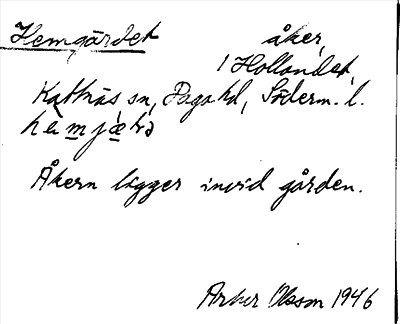 Hemgärdet åker,
1 Hollandet,
Kattnäs sn, Daga hd, Söderm. l.
Åkern ligger invid gården.
Olsson 1946